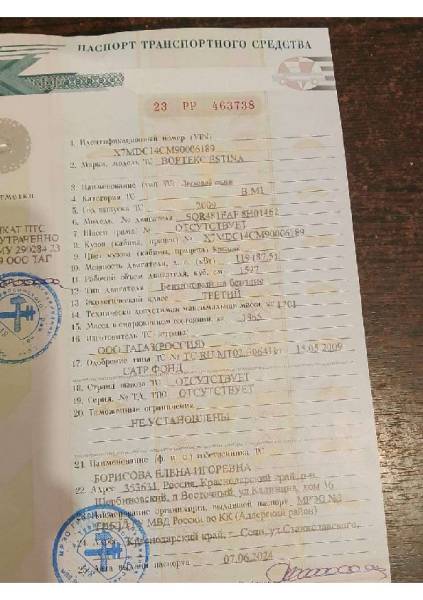 ПАСПОРТ ТРАНСПОРТНОГО СРЕДСТВА
23 РР 463738
1. Идентификационный номер (VIN)
X7MDC14CM90006189
2. Марка, модель ТС ВОРТЕКС ESTINA
3. Наименование (тип ТС) Легковой седан
4. Категория ТС В, М1
5. Год выпуска ТС 2009
6. Модель, № двигателя SQR481FAF
7. Шасси (рама) № ОТСУТСТВУЕТ
8. Кузов (кабина, прицеп) № X7MDC14CM90006189
9. Цвет кузова (кабины, прицепа)
10. Мощность двигателя, л. с. (кВт)
11. Рабочий объем двигателя, куб. см 1597
12. Тип двигателя Бензиновый на бензине
13. Экологический класс ТРЕТИЙ
14. Технически допустимая максимальная масса, кг
15. Масса в снаряженном состоянии, кг
16. Изготовитель ТС (страна)
ООО ТАГАЗ(РОССИЯ)
17. Одобрение типа ТС № 15.05.2009
САТР ФОНД
18. Страна вывоза ТС ОТСУТСТВУЕТ
19. Серия, № ТД, ТПО ОТСУТСТВУЕТ
20. Таможенные ограничения
НЕ УСТАНОВЛЕНЫ
21. Наименование (ф. и. о.) собственника ТС
БОРИСОВА ЕЛЕНА ИГОРЕВНА
22. Адрес 353631, Россия, Краснодарский край, р-н
Щербиновский, п Восточный, ул Калинина, дом 16
23. Наименование организации, выдавшей паспорт МРЭО №3
МВД России по КК (Адлерский район)
24. Адрес Краснодарский край, г Сочи, ул.Станиславского,
25. Дата выдачи паспорта 07.06.2024
ПТС
УТРАЧЕНО
ООО ТАГ